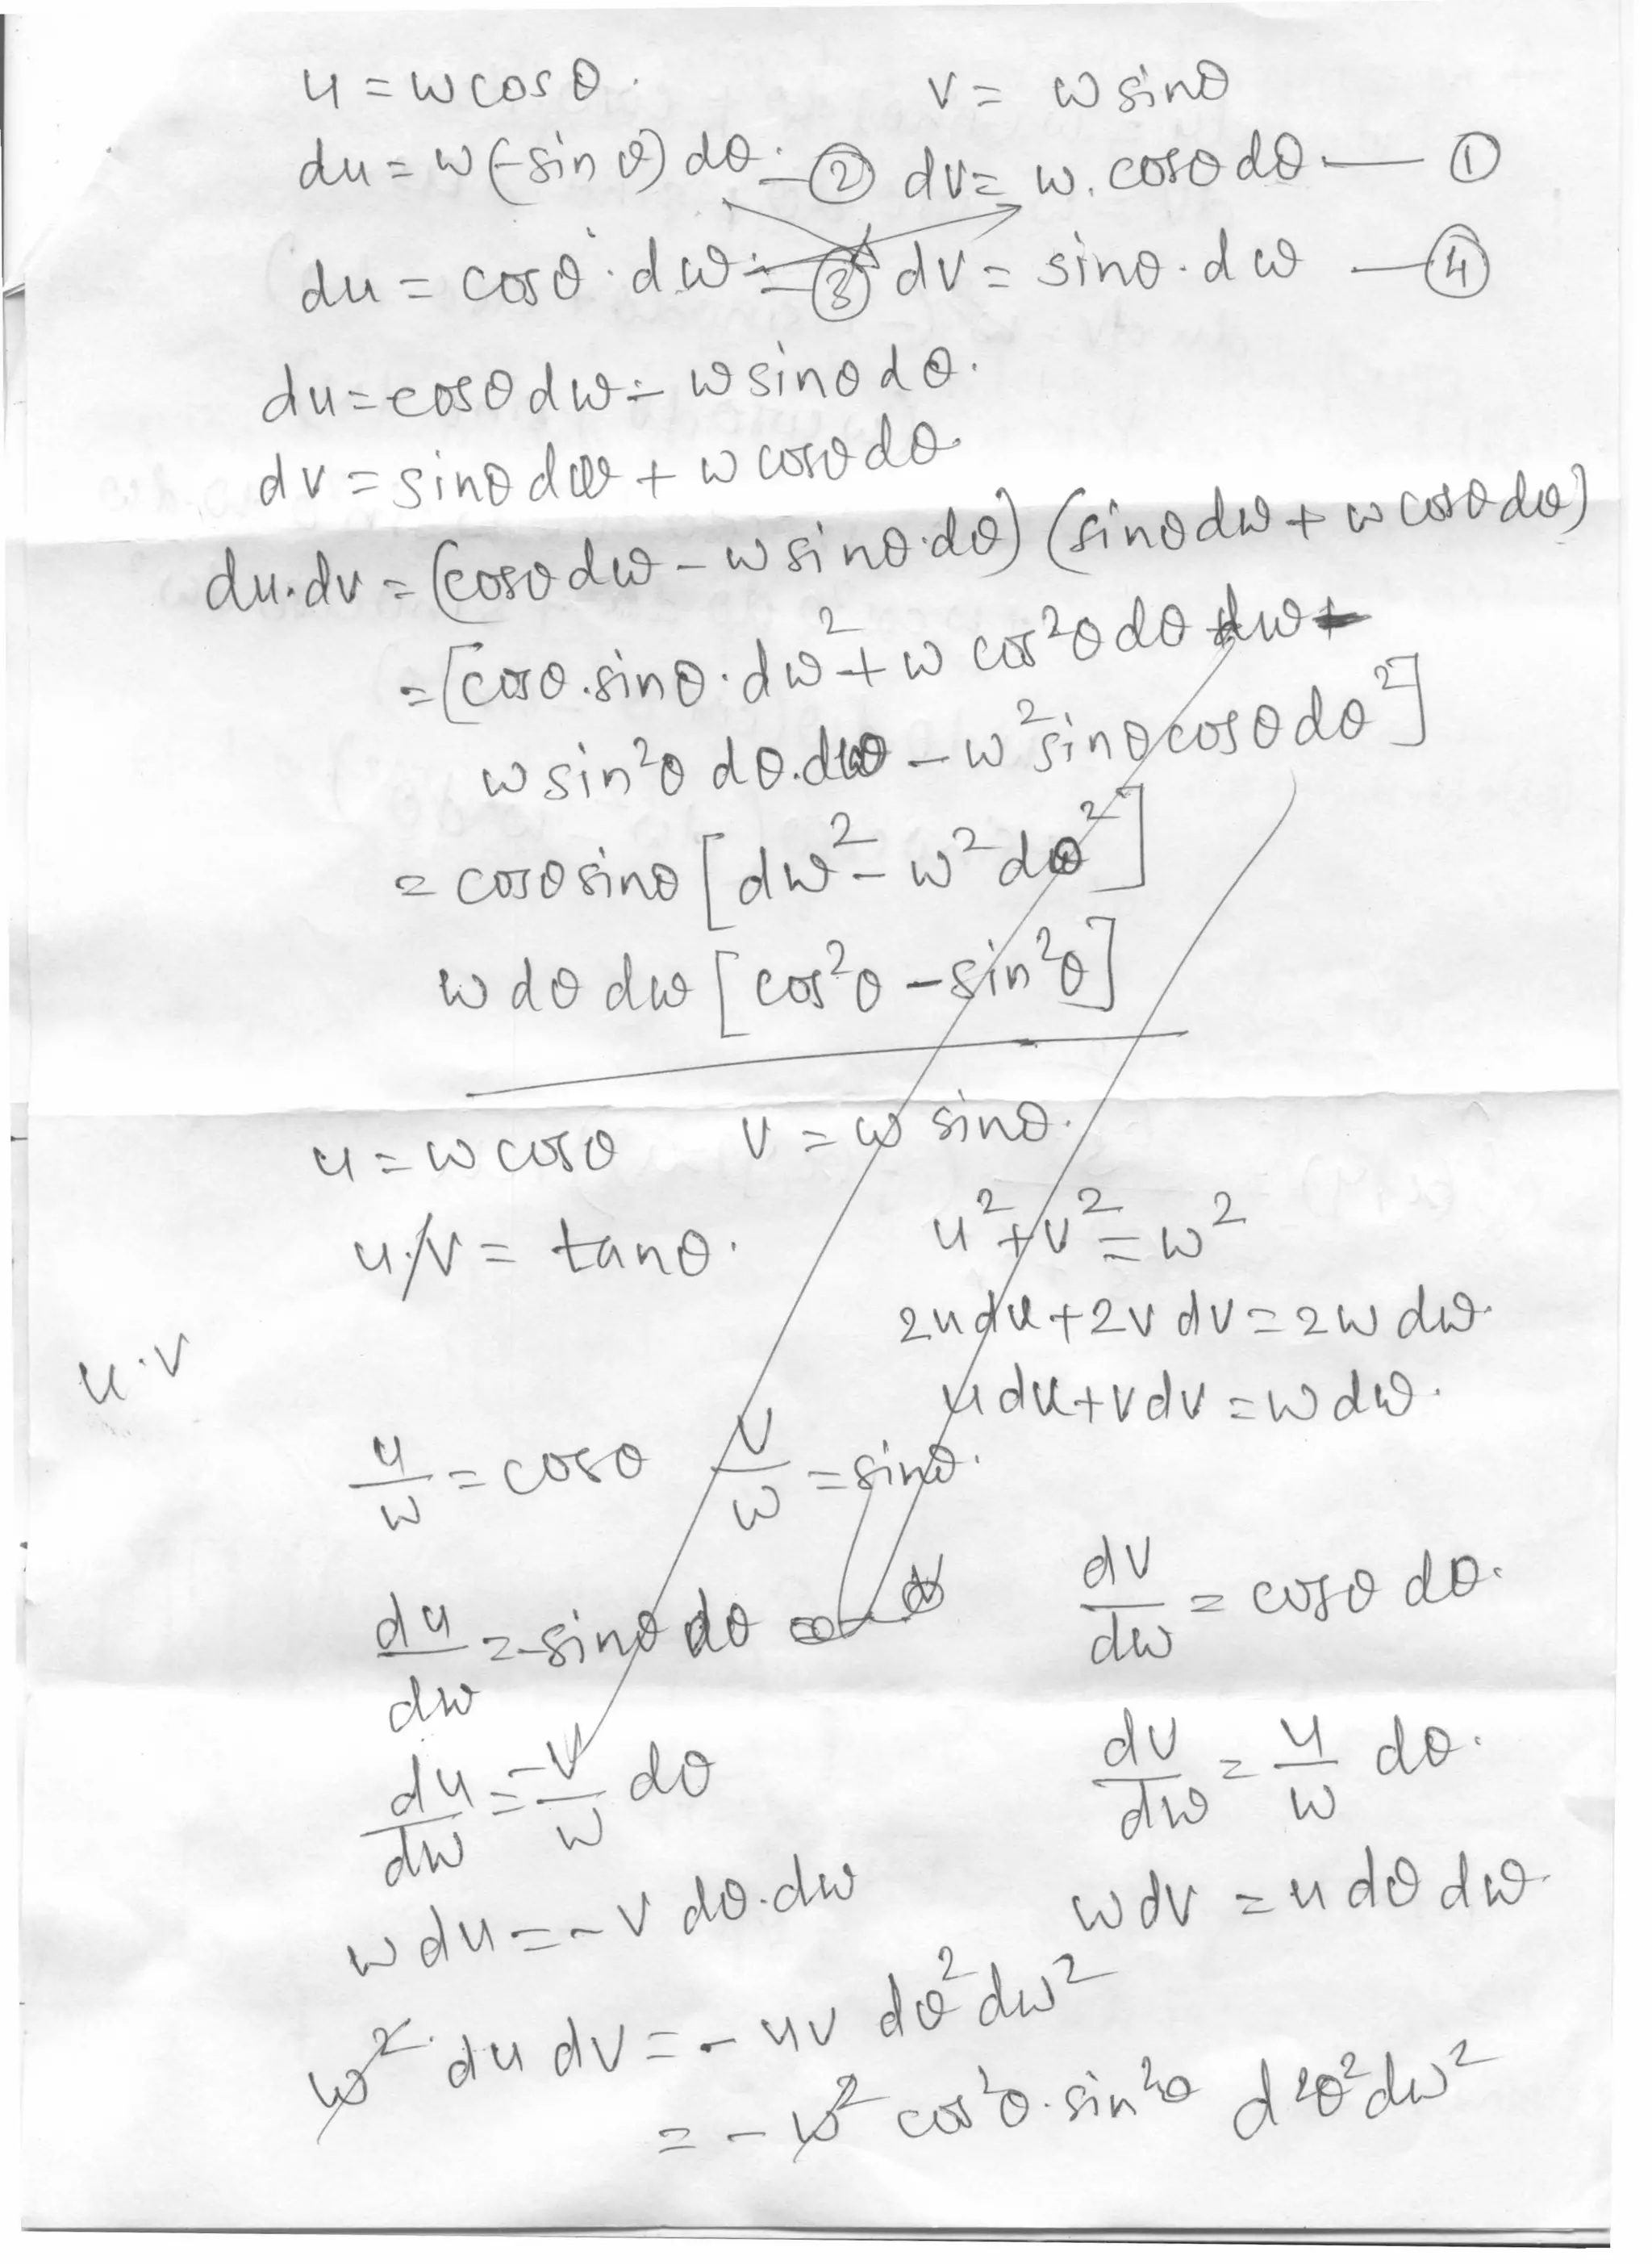 u = w cosθ. v = w sinθ
du = w(-sinθ) dθ. — ② dv = w. cosθ dθ — ①
du = cosθ · dw — ③ dv = sinθ · dw — ④
du = cosθ dw - w sinθ dθ.
dv = sinθ dw + w cosθ dθ
du.dv = (cosθ dw - w sinθ·dθ) (sinθ dw + w cosθ dθ)
= [cosθ.sinθ·dw² + w cos²θ dθ dw -
w sin²θ dθ.dw - w² sinθ cosθ dθ²]
= cosθ sinθ [dw² - w² dθ²]
w dθ dw [cos²θ - sin²θ]
u = w cosθ v = w sinθ.
u/v = tanθ. u² + v² = w²
2u du + 2v dv = 2w dw.
u·v
u du + v dv = w dw.
u/w = cosθ v/w = sinθ.
du/dw = -sinθ dθ dv/dw = cosθ dθ.
du/dw = -v/w dθ dv/dw = u/w dθ.
w du = -v dθ.dw w dv = u dθ dw.
w² du dv = - uv dθ² dw²
= - w² cos²θ. sin²θ d²θ² dw²